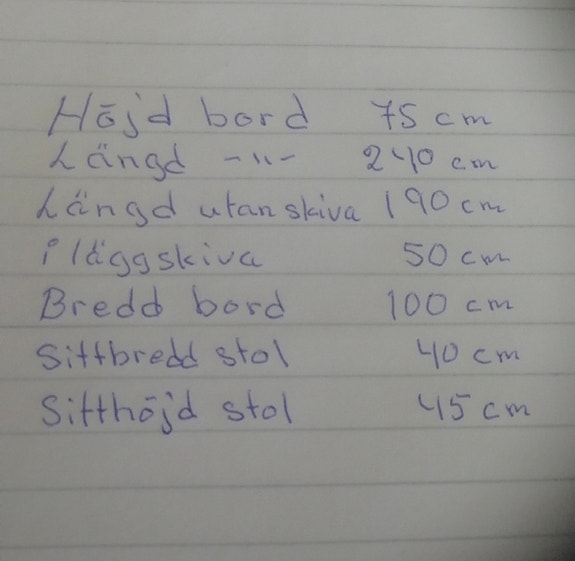 Höjd bord 75 cm
Längd -"- 240 cm
Längd utan skiva 190 cm
iläggskiva 50 cm
Bredd bord 100 cm
Sittbredd stol 40 cm
Sitthöjd stol 45 cm